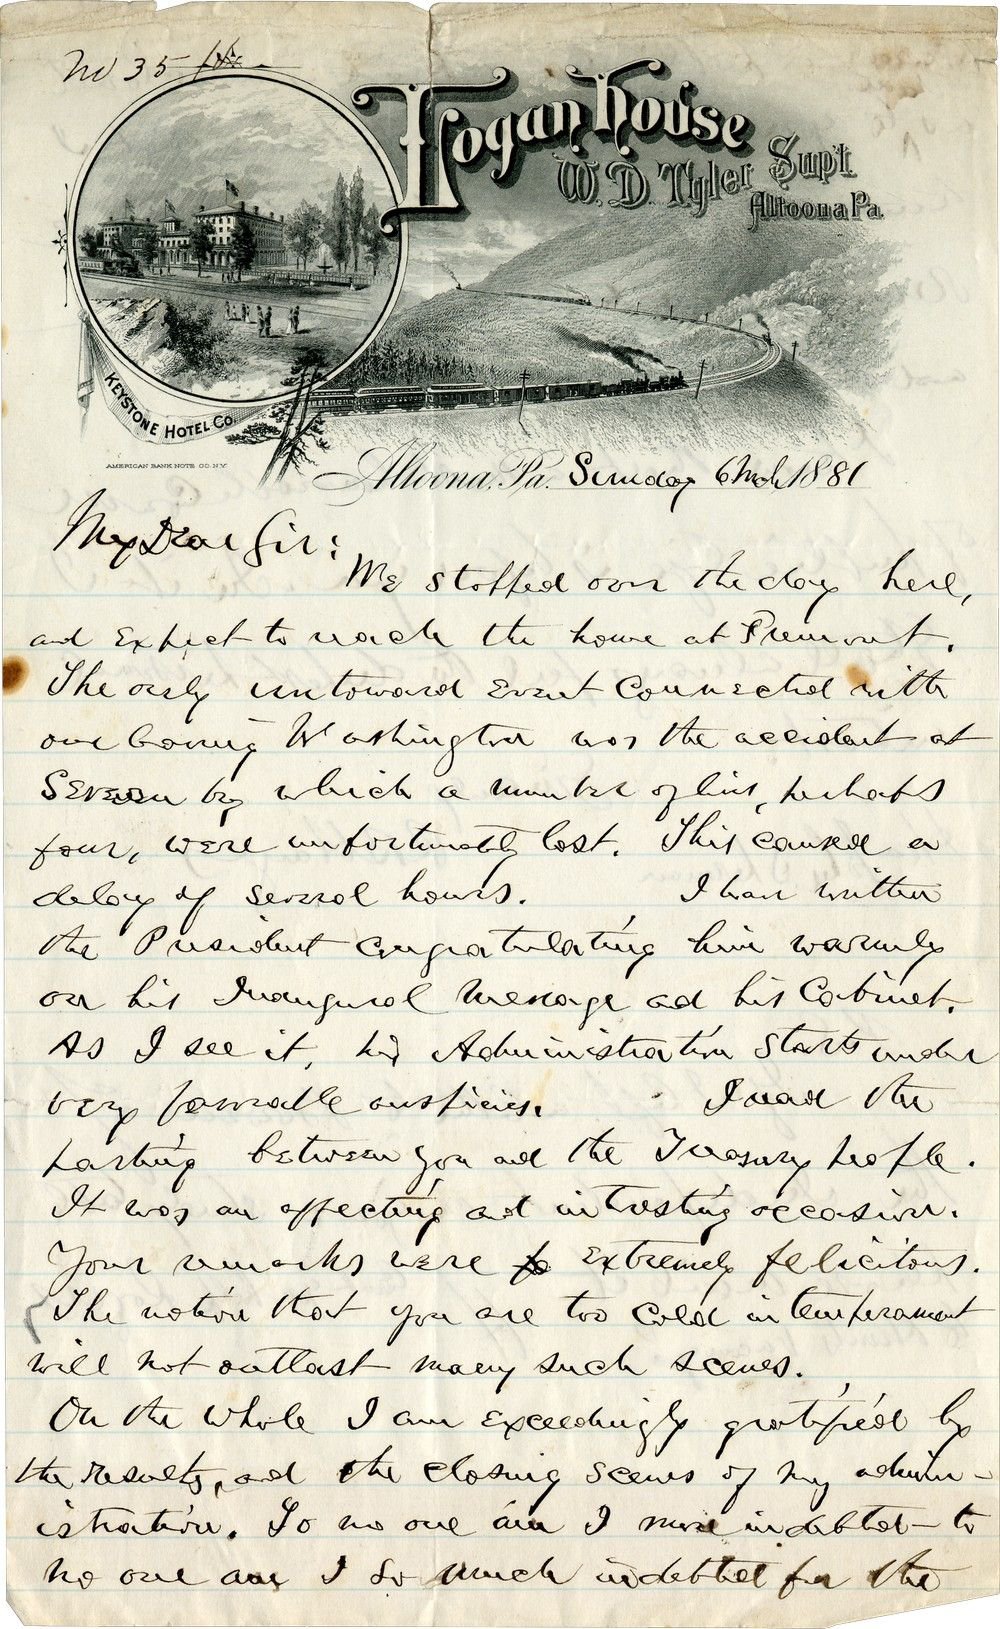 No 35
Logan House
W. D. Tyler Supt.
Altoona Pa.
KEYSTONE HOTEL CO.
AMERICAN BANK NOTE CO. N.Y.
Altoona, Pa. Sunday 6 Mch 1881
My Dear Sir:
We stopped over the day here,
and expect to reach the home at Fremont.
The only untoward event connected with
our leaving Washington was the accident at
Severn by which a number of lives, perhaps
four, were unfortunately lost. This caused a
delay of several hours. I have written
the President congratulating him warmly
on his Inaugural Message and his Cabinet.
As I see it, his Administration starts under
very favorable auspicies. I read the
parting between you and the Treasury people.
It was an affecting and intresting occasion.
Your remarks were extremely felicitous.
The notion that you are too cold in temperament
will not outlast many such scenes.
On the whole I am exceedingly gratified by
the results, and the closing scenes of my admin-
istration. To no one am I more indebted — to
no one am I so much indebted for the